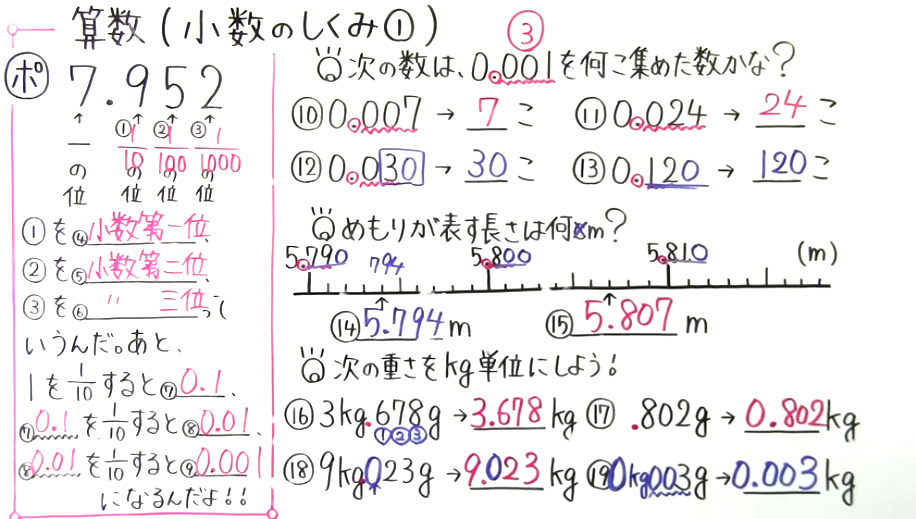 算数(小数のしくみ①)
③
ポ 7.952
↑ ↑ ↑ ↑
一の位 ① 1/10の位 ② 1/100の位 ③ 1/1000の位
①を④小数第一位、
②を⑤小数第二位、
③を⑥ 〃 三位って
いうんだ。あと、
1を1/10すると⑦0.1、
⑦0.1を1/10すると⑧0.01、
⑧0.01を1/10すると⑨0.001
になるんだよ!!
次の数は、0.001を何こ集めた数かな?
⑩0.007 → 7こ ⑪0.024 → 24こ
⑫0.030 → 30こ ⑬0.120 → 120こ
めもりが表す長さは何m?
5.790 794 5.800 5.810 (m)
⑭5.794m ⑮5.807m
次の重さをkg単位にしよう!
⑯3kg.678g→3.678kg ⑰.802g→0.802kg
①②③
⑱9kg023g→9.023kg ⑲0kg003g→0.003kg